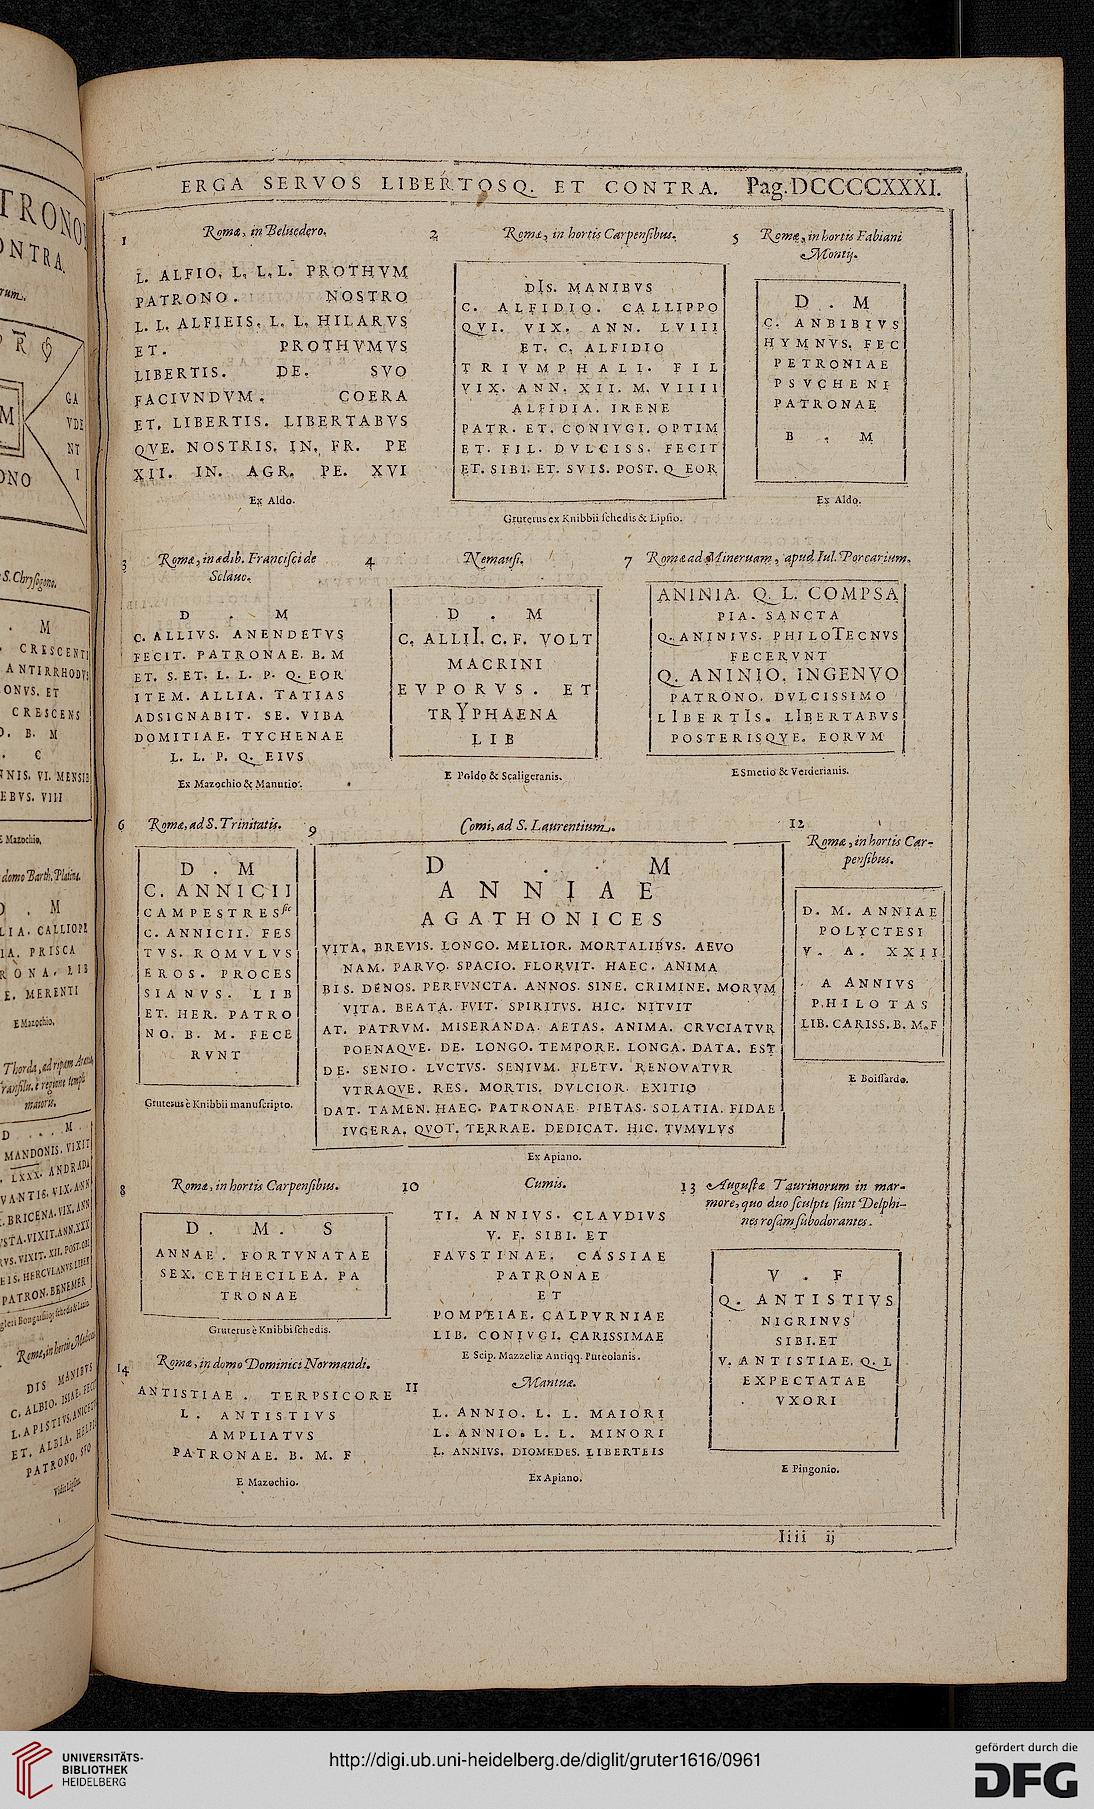 ERGA SERVOS LIBERTOSQ. ET CONTRA. Pag. DCCCCXXXI.
1
Romæ, in Belvedero.
L. ALFIO. L. L. L. PROTHVM
PATRONO. NOSTRO
L. L. ALFIEIS. L. L. HILARVS
ET. PROTHVMVS
LIBERTIS. DE. SVO
FACIVNDVM. COERA
ET. LIBERTIS. LIBERTABVS
QVE. NOSTRIS. IN. FR. PE
XII. IN. AGR. PE. XVI
Ex Aldo.
2
Romæ, in hortis Carpensibus.
DIS. MANIBVS
C. ALFIDIO. CALLIPPO
QVI. VIX. ANN. LVIII
ET. C. ALFIDIO
TRIVMPHALI. FIL
VIX. ANN. XII. M. VIIII
ALFIDIA. IRENE
PATR. ET. CONIVGI. OPTIM
ET. FIL. DVLCISS. FECIT
ET. SIBI. ET. SVIS. POST. Q. EOR
Gruterus ex Knibbii schedis & Lipsio.
5
Romæ, in hortis Fabiani
Montij.
D . M
C. ANBIBIVS
HYMNVS. FEC
PETRONIAE
PSVCHENI
PATRONAE
B . M
Ex Aldo.
3
Romæ, in ædib. Francisci de
Sclauc.
D . M
C. ALLIVS. ANENDETVS
FECIT. PATRONAE. B. M
ET. S. ET. L. L. P. Q. EOR
ITEM. ALLIA. TATIAS
ADSIGNABIT. SE. VIBA
DOMITIAE. TYCHENAE
L. L. P. Q. EIVS
Ex Mazochio & Manutio.
4
Nemausi.
D . M
C. ALLII. C. F. VOLT
MACRINI
EVPORVS. ET
TRYPHAENA
LIB
E Poldo & Scaligeranis.
7
Romæ ad Mineruam, apud Iul. Porcarium.
ANINIA. Q. L. COMPSA
PIA. SANCTA
Q. ANINIVS. PHILOTECNVS
FECERVNT
Q. ANINIO. INGENVO
PATRONO. DVLCISSIMO
LIBERTIS. LIBERTABVS
POSTERISQVE. EORVM
E Smetio & Verderianis.
6
Romæ, ad S. Trinitatis.
D . M
C. ANNICII
CAMPESTRES sic
C. ANNICII. FES
TVS. ROMVLVS
EROS. PROCES
SIANVS. LIB
ET. HER. PATRO
NO. B. M. FECE
RVNT
Gruterus è Knibbii manuscripto.
9
Comi, ad S. Laurentium.
D . . M
ANNIAE
AGATHONICES
VITA. BREVIS. LONGO. MELIOR. MORTALIBVS. AEVO
NAM. PARVO. SPACIO. FLORVIT. HAEC. ANIMA
BIS. DENOS. PERFVNCTA. ANNOS. SINE. CRIMINE. MORVM
VITA. BEATA. FVIT. SPIRITVS. HIC. NITVIT
AT. PATRVM. MISERANDA. AETAS. ANIMA. CRVCIATVR
POENAQVE. DE. LONGO. TEMPORE. LONGA. DATA. EST
DE. SENIO. LVCTVS. SENIVM. FLETV. RENOVATVR
VTRAQVE. RES. MORTIS. DVLCIOR. EXITIO
DAT. TAMEN. HAEC. PATRONAE. PIETAS. SOLATIA. FIDAE
IVGERA. QVOT. TERRAE. DEDICAT. HIC. TVMVLVS
Ex Apiano.
12
Romæ, in hortis Car-
pensibus.
D. M. ANNIAE
POLYCTESI
V. A. XXII
A ANNIVS
PHILOTAS
LIB. CARISS. B. M. F
E Boissardo.
8
Romæ, in hortis Carpensibus.
D. M. S
ANNAE. FORTVNATAE
SEX. CETHECILEA. PA
TRONAE
Gruterus è Knibbi schedis.
10
Cumis.
TI. ANNIVS. CLAVDIVS
V. F. SIBI. ET
FAVSTINAE. CASSIAE
PATRONAE
ET
POMPEIAE. CALPVRNIAE
LIB. CONIVGI. CARISSIMAE
E Scip. Mazzellæ Antiqq. Puteolanis.
13
Augustæ Taurinorum in mar-
more, quo duo sculpti sunt Delphi-
nes rosam subodorantes.
V . F
Q. ANTISTIVS
NIGRINVS
SIBI. ET
V. ANTISTIAE. Q. L
EXPECTATAE
VXORI
E Pingonio.
14
Romæ, in domo Dominici Normandi.
ANTISTIAE. TERPSICORE
L. ANTISTIVS
AMPLIATVS
PATRONAE. B. M. F
E Mazochio.
11
Mantuæ.
L. ANNIO. L. L. MAIORI
L. ANNIO. L. L. MINORI
L. ANNIVS. DIOMEDES. LIBERTEIS
Ex Apiano.
Iiii ij
UNIVERSITÄTS-
BIBLIOTHEK
HEIDELBERG
http://digi.ub.uni-heidelberg.de/diglit/gruter1616/0961
gefördert durch die
DFG